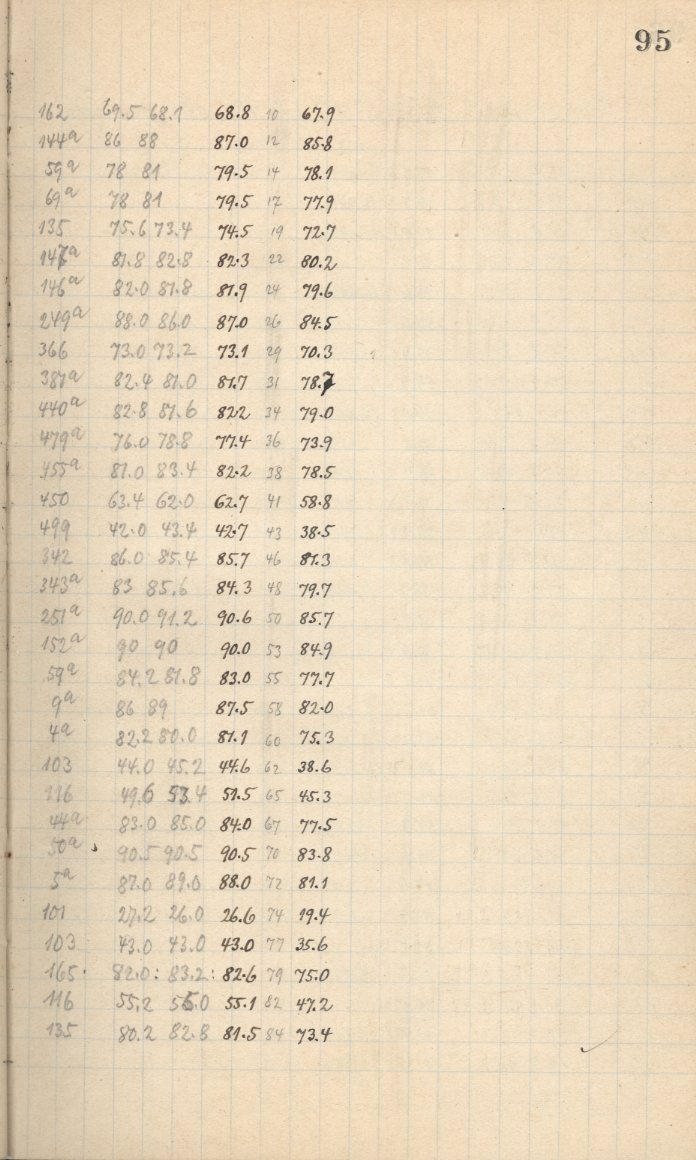 95
162 69.5 68.1 68.8 10 67.9
144a 86 88 87.0 12 85.8
59a 78 81 79.5 14 78.1
69a 78 81 79.5 17 77.9
135 75.6 73.4 74.5 19 72.7
147a 81.8 82.8 82.3 22 80.2
146a 82.0 81.8 81.9 24 79.6
249a 88.0 86.0 87.0 26 84.5
366 73.0 73.2 73.1 29 70.3
381a 82.4 81.0 81.7 31 78.7
440a 82.8 81.6 82.2 34 79.0
479a 76.0 78.8 77.4 36 73.9
455a 81.0 83.4 82.2 38 78.5
450 63.4 62.0 62.7 41 58.8
499 42.0 43.4 42.7 43 38.5
342 86.0 85.4 85.7 46 81.3
343a 83 85.6 84.3 48 79.7
251a 90.0 91.2 90.6 50 85.7
152a 90 90 90.0 53 84.9
59a 84.2 81.8 83.0 55 77.7
9a 86 89 87.5 58 82.0
4a 82.2 80.0 81.1 60 75.3
103 44.0 45.2 44.6 62 38.6
116 49.6 53.4 51.5 65 45.3
44a 83.0 85.0 84.0 67 77.5
50a 90.5 90.5 90.5 70 83.8
5a 87.0 89.0 88.0 72 81.1
101 27.2 26.0 26.6 74 19.4
103 43.0 43.0 43.0 77 35.6
165. 82.0: 83.2: 82.6 79 75.0
116 55.2 55.0 55.1 82 47.2
135 80.2 82.8 81.5 84 73.4